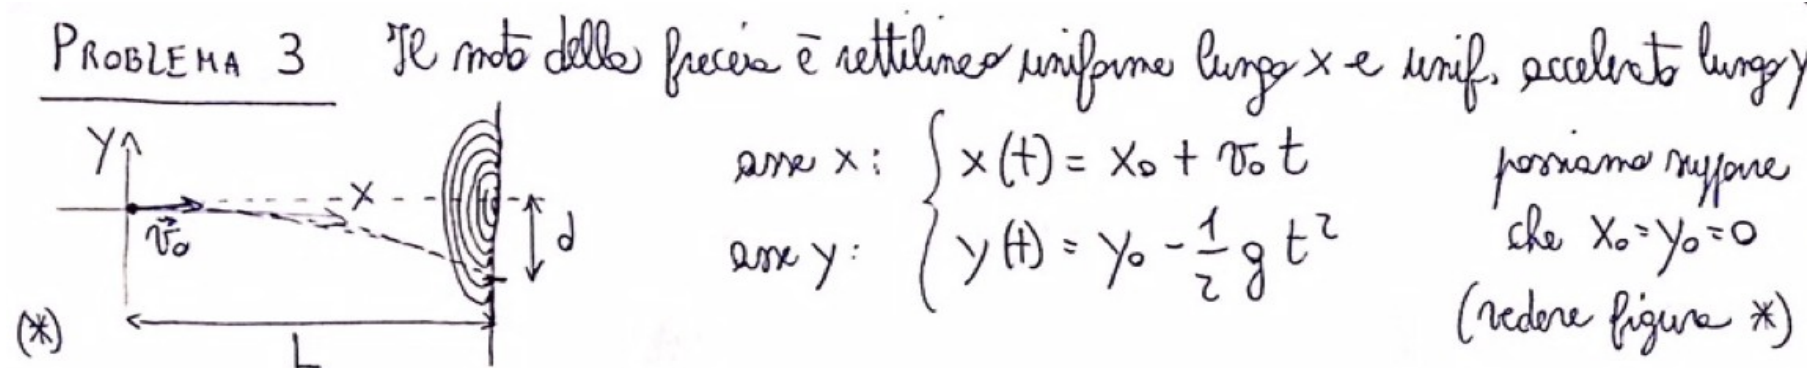 PROBLEMA 3 Il moto della freccia è rettilineo uniforme lungo x e unif. accelerato lungo y
Y
x
v⃗₀
d
L
(*)
asse x: { x(t) = x₀ + v₀ t
asse y: { y(t) = y₀ - 1/2 g t²
possiamo suppore
che x₀ = y₀ = 0
(vedere figura *)